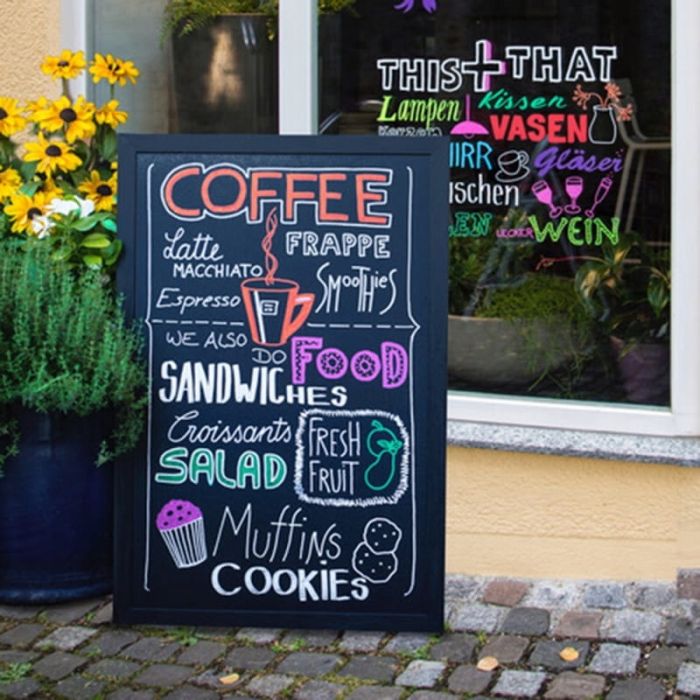 COFFEE
Latte MACCHIATO
FRAPPE
Espresso
SMOOTHIES
B
WE ALSO DO FOOD
SANDWICHES
Croissants
SALAD
FRESH FRUIT
Muffins
COOKIES
THIS + THAT
Lampen Kissen
VASEN
Gläser
WEIN